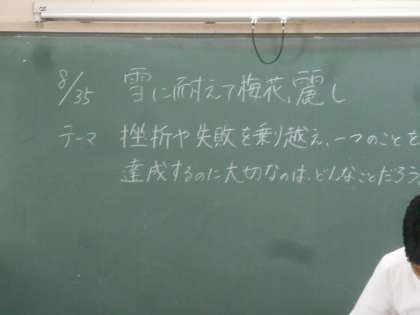 8/35 雪に耐えて梅花、麗し
テーマ 挫折や失敗を乗り越え、一つのことを
達成するのに大切なのは、どんなことだろう